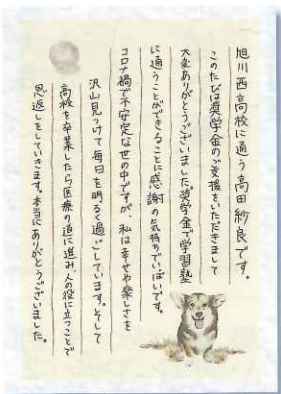 旭川西高校に通う高田紗良です。
このたびは奨学金のご支援をいただきまして
大変ありがとうございました。奨学金で学習塾
に通うことができることに感謝の気持ちでいっぱいです。
コロナ禍で不安定な世の中ですが、私は幸せや楽しさを
沢山見つけて毎日を明るく過ごしています。そして
高校を卒業したら医療の道に進み、人の役に立つことで
恩返しをしていきます。本当にありがとうございました。